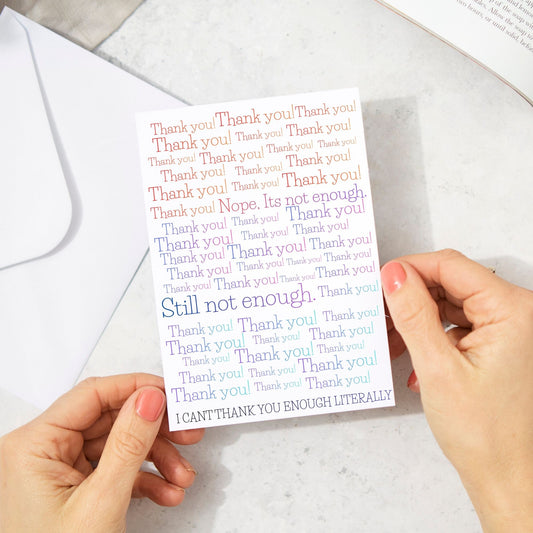 Thank you! Thank you! Thank you!
Thank you! Thank you! Thank you!
Thank you! Thank you! Thank you! Thank you!
Thank you! Thank you! Thank you!
Thank you! Thank you! Thank you!
Thank you! Nope. Its not enough.
Thank you! Thank you! Thank you!
Thank you! Thank you! Thank you!
Thank you! Thank you! Thank you!
Thank you! Thank you! Thank you!
Thank you! Thank you! Thank you! Thank you!
Still not enough. Thank you!
Thank you! Thank you! Thank you!
Thank you! Thank you! Thank you!
Thank you! Thank you! Thank you!
Thank you! Thank you! Thank you!
Thank you! Thank you! Thank you!
I CANT THANK YOU ENOUGH LITERALLY
two hours, or until solid, before